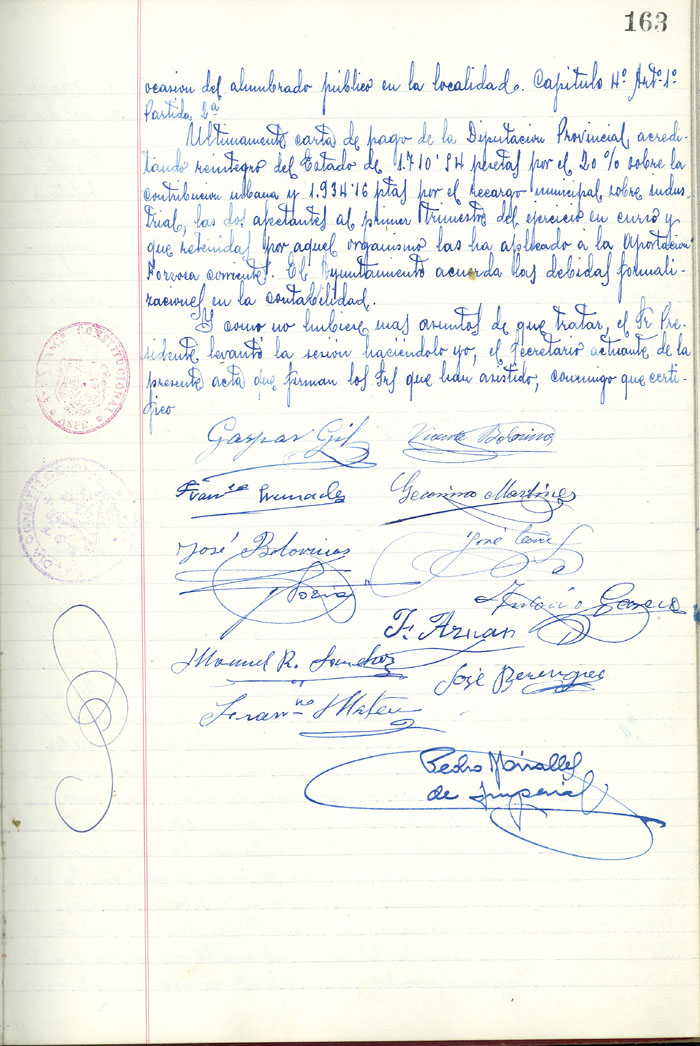 163
ocasion del alumbrado publico en la localidad. Capitulo 4º Artº 1º
Partida 2ª
Ultimamente carta de pago de la Diputacion Provincial acredi-
tando reintegro del Estado de 1.710'54 pesetas por el 20 % sobre la
contribucion urbana y 1.934'16 ptas por el recargo municipal sobre indus-
trial, las dos afectantes al primer trimestre del ejercicio en curso y
que retenidas por aquel organismo las ha aplicado a la Aportacion
Forzosa corriente. El Ayuntamiento acuerda las debidas formali-
zaciones en la contabilidad.
Y como no hubiere mas asuntos de que tratar, el Sr Pre-
sidente levantó la sesión haciéndolo yo, el Secretario actuante de la
presente acta que firman los Srs que han asistido, conmigo que certi-
fico
Gaspar Gil Vicente Bolorino
Geronimo Martinez
José Bolorinos
José
Soria
Antonio Garcia
F. Aznar
Manuel R. Sanchez
José Berenguer
Franco Mateu
Pedro Miralles
de Imperial
CONSTITUCIONAL